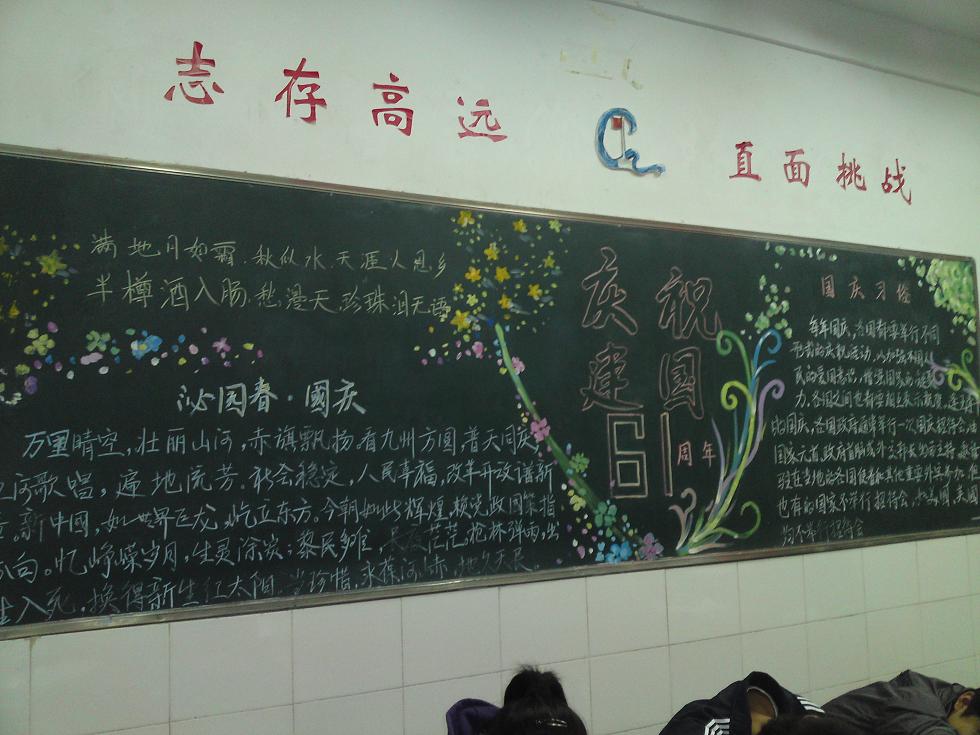 志存高远 直面挑战
满地月如霜.秋似水.天涯人思乡
半樽酒入肠.愁漫天.珍珠泪无语
沁园春·國庆
万里晴空,壮丽山河,赤旗飘扬.看九州方圆,普天同庆,
河歌唱,遍地流芳.社会稳定,人民幸福,改革开放谱新
新中國,如世界巨龙,屹立东方。今朝如此辉煌,赖党政国策指
向。忆峥嵘岁月,生灵涂炭;黎民多难,长夜茫茫,枪林弹雨,出
生入死,换得新生红太阳.当珍惜,永葆河山赤,地久天长.
庆祝
建国
61周年
国庆习俗
每年国庆,各国都要举行不同
形式的庆祝活动,以加强本国人
民的爱国意识,增强国家的凝聚
力.各国之间也都要相互表示祝贺.
比国庆,各国政府通常举行一次国庆招待会,由
国家元首、政府首脑或外交部长出面主持,邀请
驻在当地的各国使节和其他重要外宾参加.但
也有的国家不举行招待会,如美国、英国
均不举行招待会